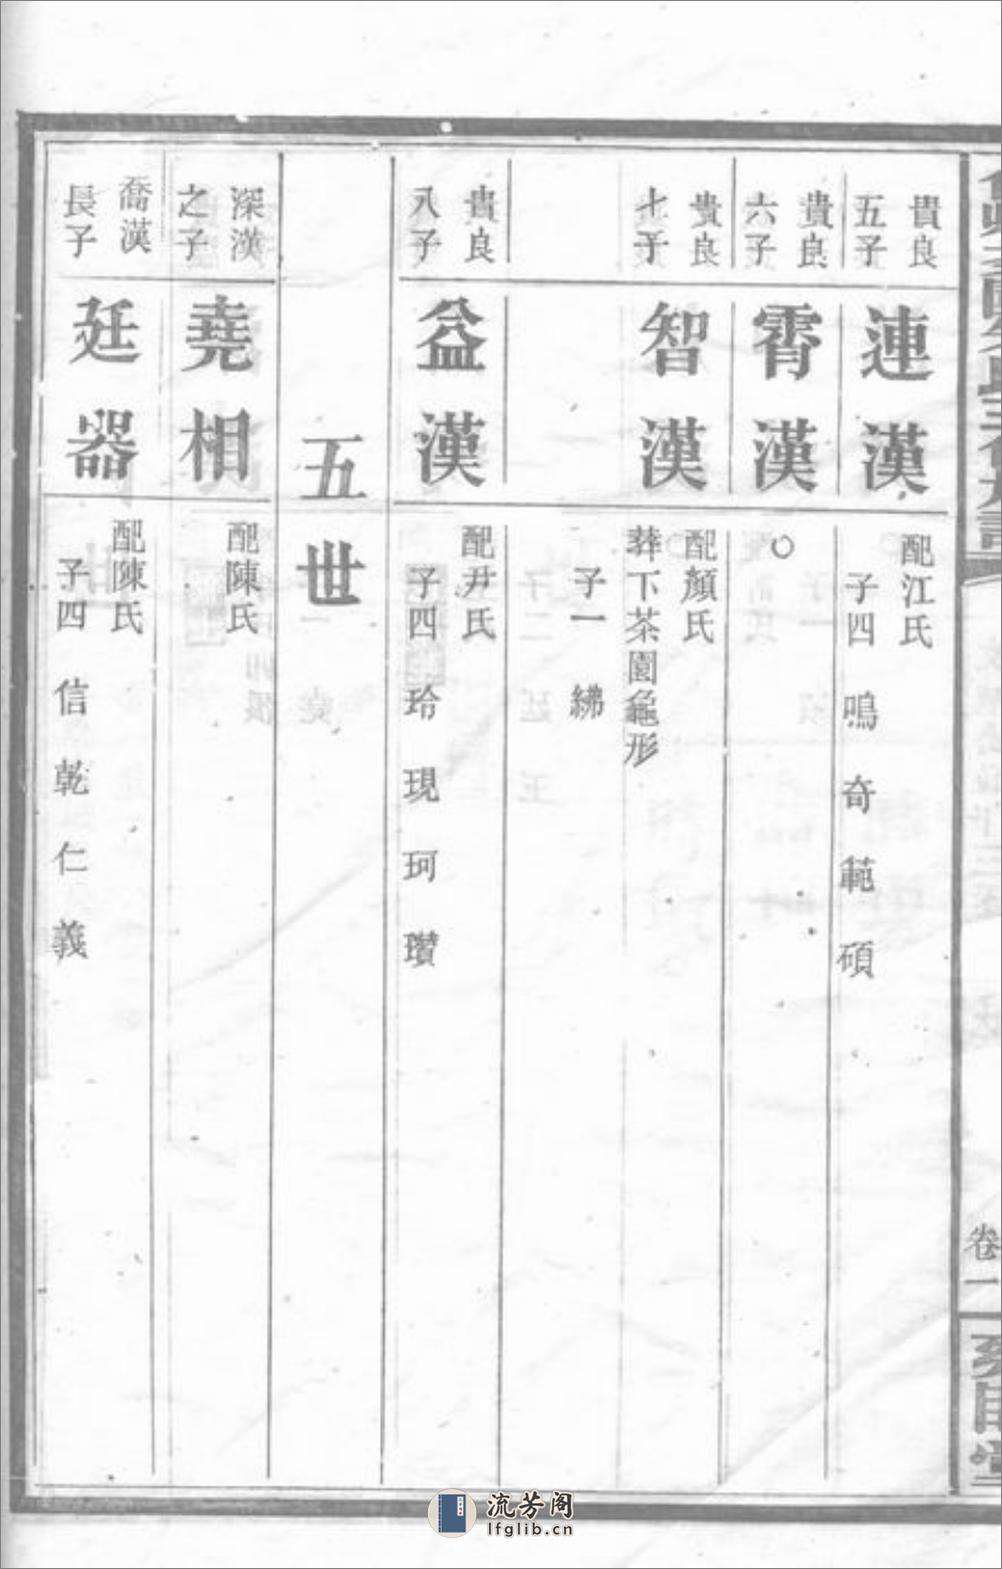 貴良
五子
連漢
配江氏
子四 鳴 奇 範 碩
貴良
六子
霄漢
○
貴良
七子
智漢
配顏氏
葬下茶園龜形
子一 紼
貴良
八子
益漢
配尹氏
子四 玲 現 珂 瓚
五世
深漢
之子
堯相
配陳氏
喬漢
長子
廷器
配陳氏
子四 信 乾 仁 義
卷一
流芳阁
lfglib.cn